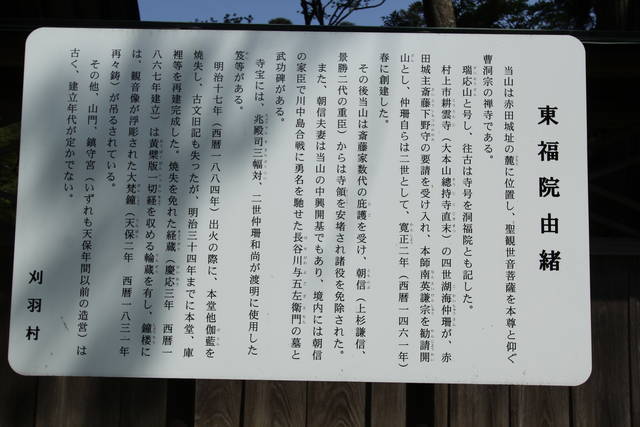 東福院由緒
当山は赤田城址の麓に位置し、聖観世音菩薩を本尊と仰ぐ
曹洞宗の禅寺である。
瑞応山と号し、往古は寺号を洞福院とも記した。
村上市耕雲寺（大本山總持寺直末）の四世湖海仲珊が、赤
田城主斎藤下野守の要請を受け入れ、本師南英謙宗を勧請開
山とし、仲珊自らは二世として、寛正二年（西暦一四六一年）
春に創建した。
その後当山は斎藤家数代の庇護を受け、朝信（上杉謙信、
景勝二代の重臣）からは寺領を安堵され諸役を免除された。
また、朝信夫妻は当山の中興開基でもあり、境内には朝信
の家臣で川中島合戦に勇名を馳せた長谷川与五左衛門の墓と
武功碑がある。
寺宝には、兆殿司三幅対、二世仲珊和尚が渡明に使用した
笈等がある。
明治十七年（西暦一八八四年）出火の際に、本堂他伽藍を
焼失し、古文旧記も失ったが、明治三十四年までに本堂、庫
裡等を再建完成した。焼失を免れた経蔵（慶応三年　西暦一
八六七年建立）は黄檗版一切経を収める輪蔵を有し、鐘楼に
は、観音像が浮彫された大梵鐘（天保二年　西暦一八三一年
再々鋳）が吊るされている。
その他、山門、鎮守宮（いずれも天保年間以前の造営）は
古く、建立年代が定かでない。
刈羽村